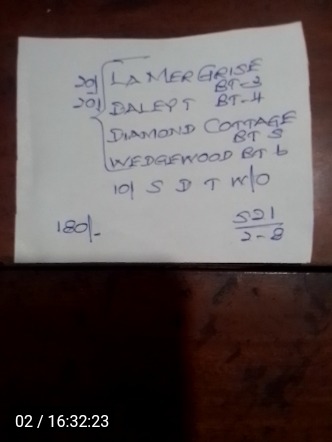 20/ LA MER GRISE
BT-3
20/ DALEPT BT-4
DIAMOND COTTAGE
BT 5
WEDGEWOOD BT 6
10/ S D T W/O
180/-
521
2-8
02 / 16:32:23